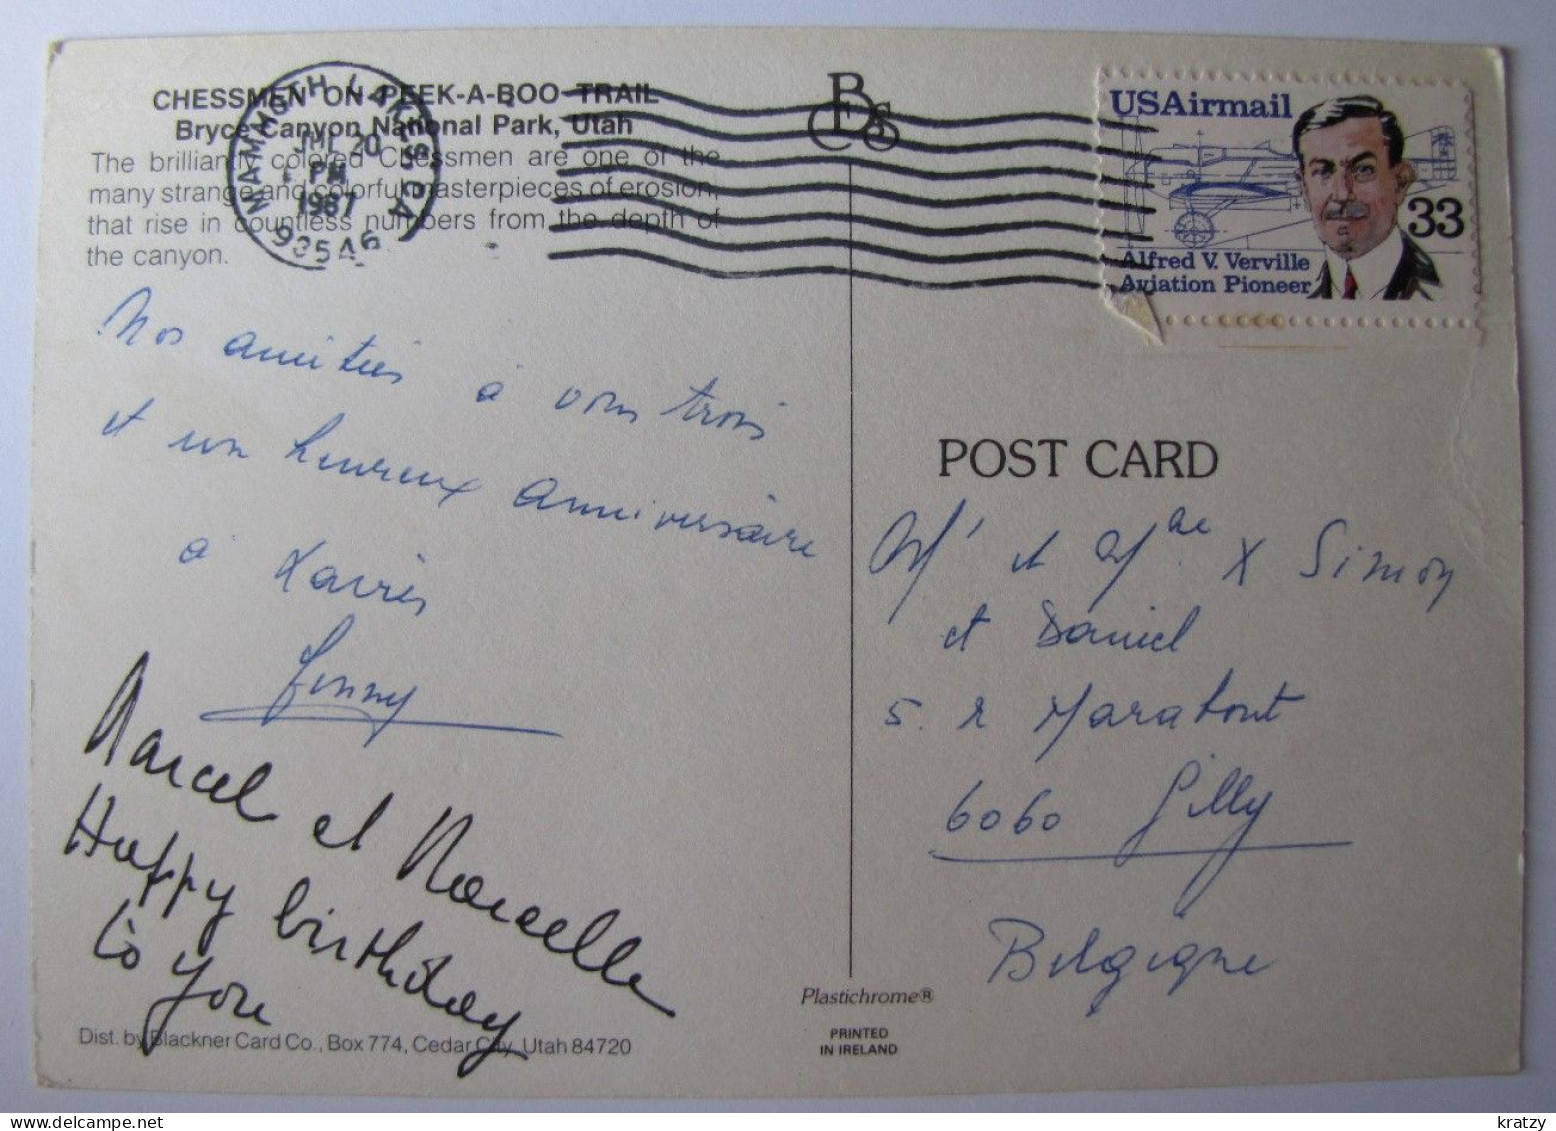 CHESSMEN ON PEEK-A-BOO TRAIL
Bryce Canyon National Park, Utah
The brilliantly colored Chessmen are one of the
many strange and colorful masterpieces of erosion,
that rise in countless numbers from the depth of
the canyon.
MAMMOTH LAKES CA
JUL 20
PM
1987
93546
BCS
USAirmail
33
Alfred V. Verville
Aviation Pioneer
Nos amitiés à vous trois
et un heureux anniversaire
à Xavier
Jenny
Marcel et Marcelle
Happy birthday
to you
POST CARD
Mr et Mme X Simon
et Daniel
5. r Marabout
6060 Gilly
Belgique
Plastichrome®
PRINTED
IN IRELAND
Dist. by Blackner Card Co., Box 774, Cedar City, Utah 84720
kratzy